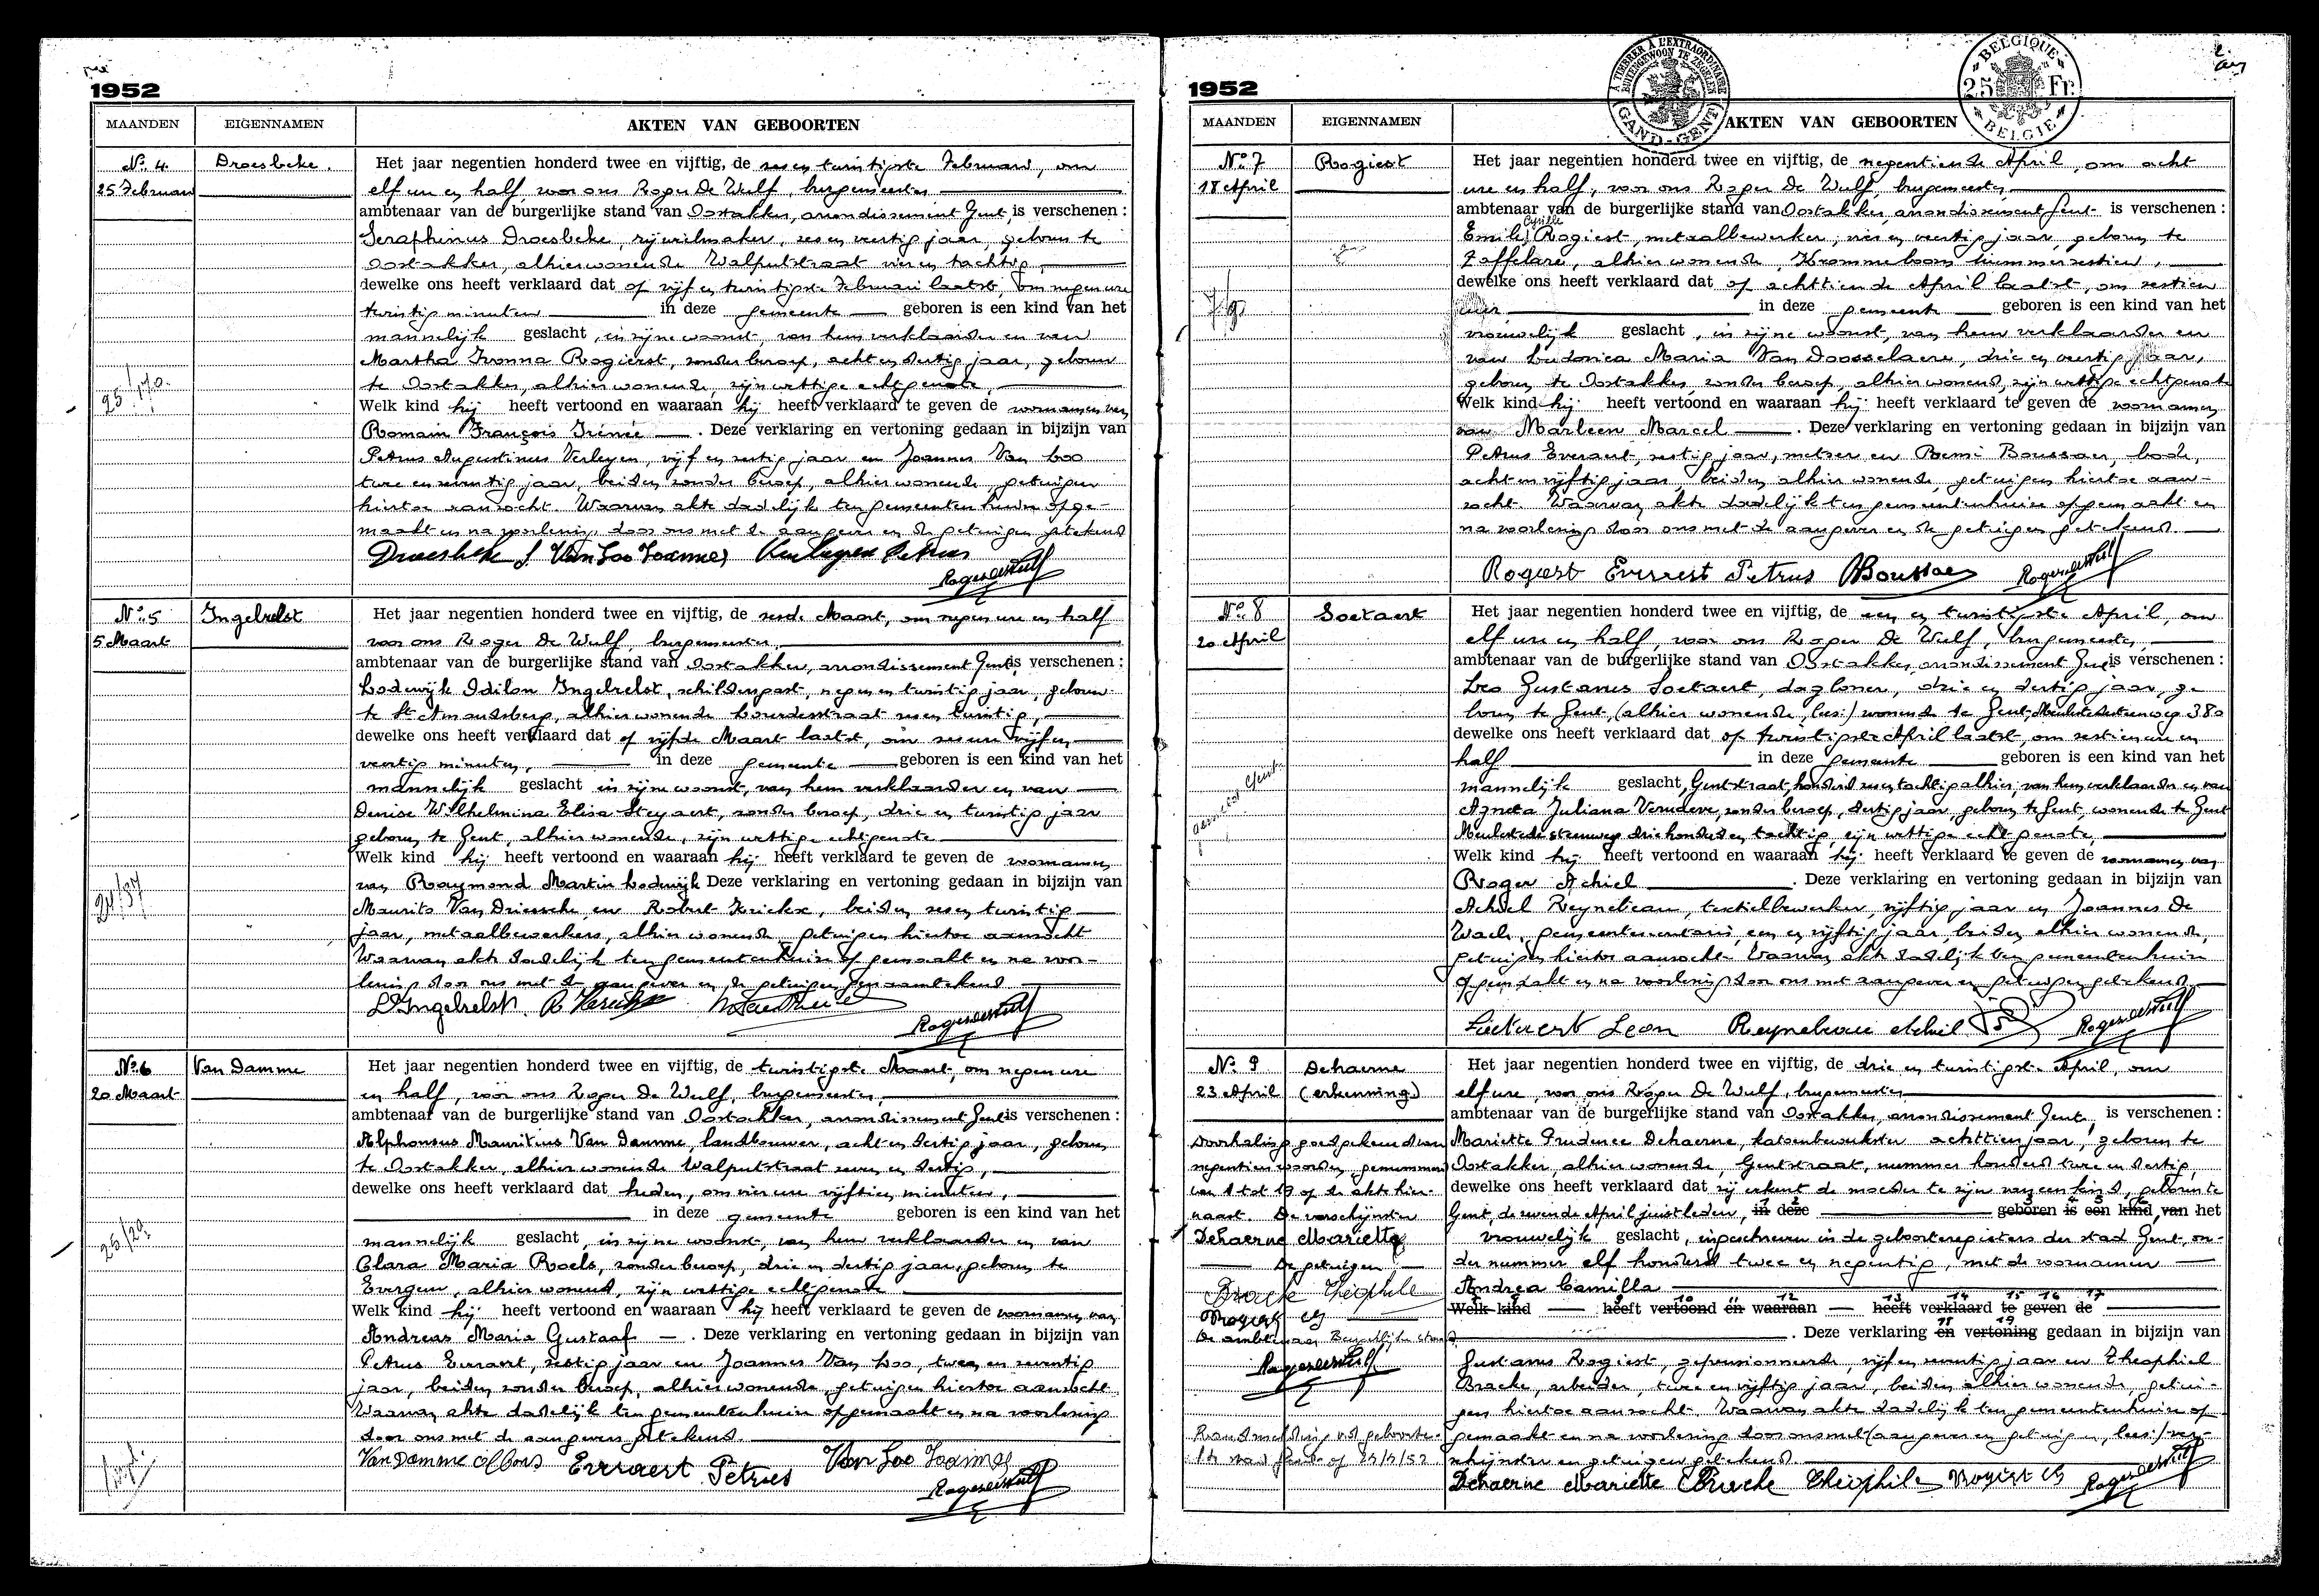 1952
MAANDEN EIGENNAMEN AKTEN VAN GEBOORTEN
No. 4. Droesbeke. Het jaar negentien honderd twee en vijftig, de zes en twintigste Februari, om
25 Februari elf ure en half, voor ons Roger De Wulf, burgemeester
ambtenaar van de burgerlijke stand van Oostakker, arrondissement Gent, is verschenen :
Seraphinus Droesbeke, rijwielmaker, zes en veertig jaar, geboren te
Oostakker, alhier wonende Walputstraat vier en tachtig,
dewelke ons heeft verklaard dat op vijf en twintigste Februari laatst, om negen ure
twintig minuten in deze gemeente geboren is een kind van het
mannelijk geslacht, in zijne woonst, van hem verklaarder en van
Martha Ivonna Rogierst, zonder beroep, acht en dertig jaar, geboren
te Oostakker, alhier wonende, zijn wettige echtgenote,
Welk kind hij heeft vertoond en waaraan hij heeft verklaard te geven de voornamen van
Romain François Irénée . Deze verklaring en vertoning gedaan in bijzijn van
Petrus Augustinus Verleyen, vijf en zestig jaar en Joannes Van Loo
twee en zeventig jaar, beiden zonder beroep, alhier wonende, getuigen
hiertoe aanzocht. Waarvan akte dadelijk ten gemeentenhuize opge-
maakt en na voorlezing door ons met de aangever en de getuigen getekend
Droesbeke S Van Loo Joannes Verleyen Petrus
Roger De Wulf
No. 5 Ingelrelst Het jaar negentien honderd twee en vijftig, de zesde Maart, om negen ure en half
5 Maart voor ons Roger De Wulf, burgemeester,
ambtenaar van de burgerlijke stand van Oostakker, arrondissement Gent is verschenen :
Lodewijk Odilon Ingelrelst, schildersgast, negen en twintig jaar, geboren
te St Amandsberg, alhier wonende Lourdesstraat zes en twintig,
dewelke ons heeft verklaard dat op vijfde Maart laatst, om zes ure vijf en
veertig minuten, in deze gemeente geboren is een kind van het
mannelijk geslacht in zijne woonst, van hem verklaarder en van
Denise Wilhelmina Elisa Steyaert, zonder beroep, drie en twintig jaar
geboren te Gent, alhier wonende, zijn wettige echtgenote
Welk kind hij heeft vertoond en waaraan hij heeft verklaard te geven de voornamen
van Raymond Martin Lodewijk Deze verklaring en vertoning gedaan in bijzijn van
Maurits Van Driessche en Robert Krickx, beiden zes en twintig
jaar, metaalbewerkers, alhier wonende getuigen hiertoe aanzocht
Waarvan akte dadelijk ten gemeentenhuize opgemaakt en na voor-
lezing door ons met de aangever en de getuigen genaamtekend
L Ingelrelst
Roger De Wulf
No. 6 Van Damme Het jaar negentien honderd twee en vijftig, de twintigste Maart, om negen ure
20 Maart en half, voor ons Roger De Wulf, burgemeester,
ambtenaar van de burgerlijke stand van Oostakker, arrondissement Gent is verschenen :
Alphonsus Mauritius Van Damme, landbouwer, acht en dertig jaar, geboren
te Oostakker, alhier wonende Walputstraat zeven en dertig,
dewelke ons heeft verklaard dat heden, om vier ure vijftien minuten,
in deze gemeente geboren is een kind van het
25/20.
mannelijk geslacht, in zijne woonst, van hem verklaarder en van
Clara Maria Roels, zonder beroep, drie en dertig jaar, geboren te
Evergem, alhier wonend, zijn wettige echtgenote
Welk kind hij heeft vertoond en waaraan hij heeft verklaard te geven de voornamen van
Andreas Maria Gustaaf . Deze verklaring en vertoning gedaan in bijzijn van
Petrus Everaert, zestig jaar en Joannes Van Loo, twee en zeventig
jaar, beiden zonder beroep, alhier wonende, getuigen hiertoe aanzocht
Waarvan akte dadelijk ten gemeentenhuize opgemaakt en na voorlezing
door ons met de aangevers getekend.
Van Damme Alfons Everaert Petrus Van Loo Joannes
Roger De Wulf
1952
A TIMBRER A L'EXTRAORDINAIRE BUITENGEWOON TE ZEGELEN GAND-GENT
BELGIQUE 25 Fr. BELGIE
MAANDEN EIGENNAMEN AKTEN VAN GEBOORTEN
No. 7 Rogiest Het jaar negentien honderd twee en vijftig, de negentiende April, om acht
18 April ure en half, voor ons Roger De Wulf, burgemeester,
ambtenaar van de burgerlijke stand van Oostakker, arrondissement Gent is verschenen :
Cyrille
Emile Rogiest, metaalbewerker, vier en veertig jaar, geboren te
Zaffelare, alhier wonende, Krommeboom nummer zestien,
dewelke ons heeft verklaard dat op achttiende April laatst, om zestien
uur in deze gemeente geboren is een kind van het
vrouwelijk geslacht, in zijne woonst, van hem verklaarder en
van Ludovica Maria Van Doosselaere, drie en veertig jaar,
geboren te Oostakker, zonder beroep, alhier wonend, zijn wettige echtgenote
Welk kind hij heeft vertoond en waaraan hij heeft verklaard te geven de voornamen
van Marleen Marcel . Deze verklaring en vertoning gedaan in bijzijn van
Petrus Everaert, zestig jaar, metser en Remi Boussaer, bode,
acht en vijftig jaar, beiden alhier wonende, getuigen hiertoe aan-
zocht. Waarvan akte dadelijk ten gemeentenhuize opgemaakt en
na voorlezing door ons met de aangever en de getuigen getekend.
Rogiest Everaert Petrus Boussaer Roger De Wulf
No. 8 Soetaert Het jaar negentien honderd twee en vijftig, de een en twintigste April, om
20 April elf ure en half, voor ons Roger De Wulf, burgemeester,
ambtenaar van de burgerlijke stand van Oostakker, arrondissement Gent is verschenen :
Leo Gustavus Soetaert, dagloner, drie en dertig jaar, ge-
boren te Gent, (alhier wonende, lees:) wonende te Gent, Meulestedesteenweg 380
dewelke ons heeft verklaard dat op twintigste April laatst, om zestien ure en
half in deze gemeente geboren is een kind van het
mannelijk geslacht, Gentstraat, honderd zes en tachtig alhier, van hem verklaarder en van
Agneta Juliana Vernaeve, zonder beroep, dertig jaar, geboren te Gent, wonende te Gent
Meulestedesteenweg driehonderd en tachtig, zijn wettige echtgenote,
Welk kind hij heeft vertoond en waaraan hij heeft verklaard te geven de voornamen van
Roger Achiel . Deze verklaring en vertoning gedaan in bijzijn van
Achiel Reynebeau, textielbewerker, vijftig jaar en Joannes De
Waele, gemeentesecretaris, een en vijftig jaar, beiden alhier wonende,
getuigen hiertoe aanzocht. Waarvan akte dadelijk ten gemeentenhuize
opgemaakt en na voorlezing door ons met aangever en getuigen getekend.
Soetaert Leon Reynebeau Achiel Roger De Wulf
No. 9 Dehaerne Het jaar negentien honderd twee en vijftig, de drie en twintigste April, om
23 April (erkenning) elf ure, voor ons Roger De Wulf, burgemeester
ambtenaar van de burgerlijke stand van Oostakker, arrondissement Gent, is verschenen :
Doorhaling goedgekeurd van Mariette Prudence Dehaerne, katoenbewerkster achttien jaar, geboren te
negentien woorden, genummerd Oostakker alhier wonende, Gentstraat, nummer honderd twee en dertig,
van 1 tot 19 op de akte hier- dewelke ons heeft verklaard dat zij erkent de moeder te zijn van een kind, geboren te
naast. De verschijnster Gent, de zevende April juist leden, in deze geboren is een kind van het
Dehaerne Mariette vrouwelijk geslacht, ingeschreven in de geboorteregisters der stad Gent, on-
De getuigen der nummer elf honderd twee en negentig, met de voornamen
Bracke Théophile Andrea Camilla
Welk kind heeft vertoond en waaraan heeft verklaard te geven de
Rogiest G
De ambtenaar Burgerlijke stand . Deze verklaring en vertoning gedaan in bijzijn van
Roger De Wulf Gustavus Rogiest, gepensionneerde, vijf en zeventig jaar en Theophiel
Bracke, arbeider, twee en vijftig jaar, beiden alhier wonende, getui-
gen hiertoe aanzocht. Waarvan akte dadelijk ten gemeentenhuize op-
Randmelding gemaakt en na voorlezing door ons met (aangever en getuigen, lees:) ver-
schijnster en getuigen getekend.
Dehaerne Mariette Bracke Théophile Rogiest G Roger De Wulf